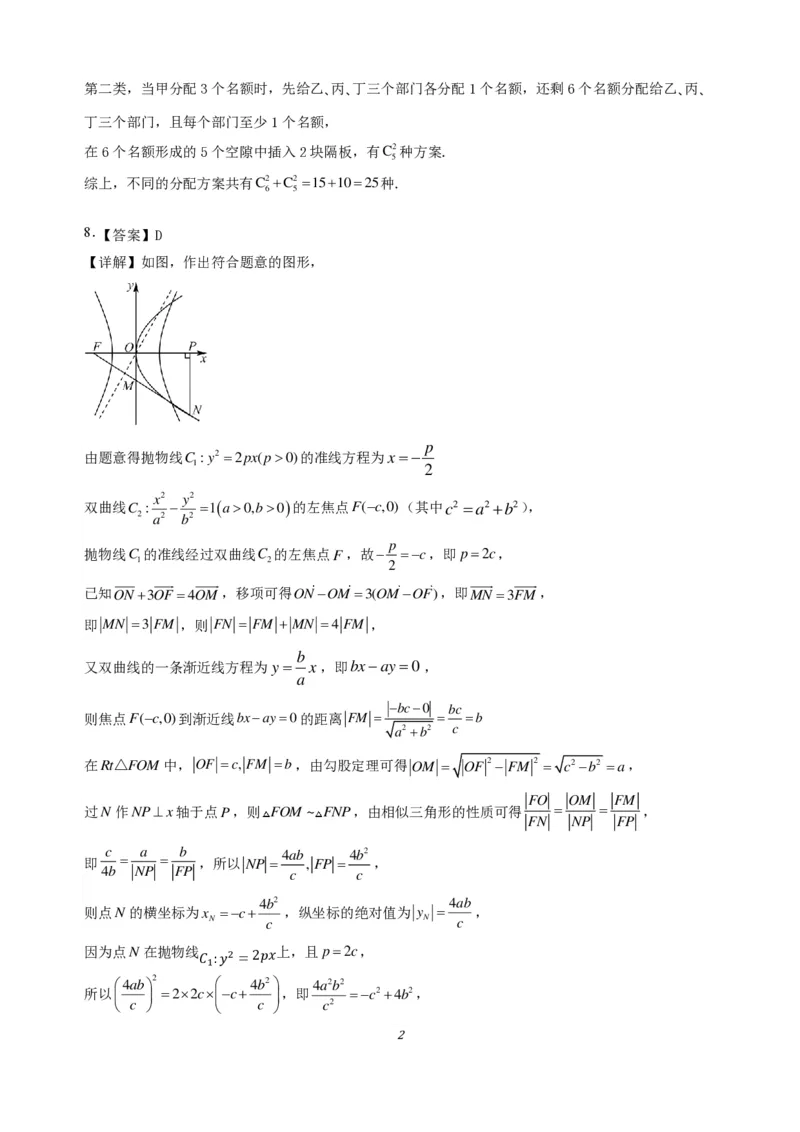 第二类，当甲分配 3 个名额时，先给乙、丙、丁三个部门各分配 1 个名额，还剩 6 个名额分配给乙、丙、
丁三个部门，且每个部门至少 1 个名额，
在 6 个名额形成的 5 个空隙中插入 2 块隔板，有 C₅² 种方案.
综上，不同的分配方案共有 C₆² + C₅² = 15+10 = 25 种.
8.【答案】D
【详解】如图，作出符合题意的图形，
y
F O P
x
M
N
由题意得抛物线 C₁: y² = 2px(p > 0) 的准线方程为 x = −p/2
双曲线 C₂: x²/a² − y²/b² = 1(a > 0, b > 0) 的左焦点 F(−c,0)（其中 c² = a² + b²），
抛物线 C₁ 的准线经过双曲线 C₂ 的左焦点 F，故 −p/2 = −c，即 p = 2c，
已知 ON + 3OF = 4OM，移项可得 ON − OM = 3(OM − OF)，即 MN = 3FM，
即 |MN| = 3|FM|，则 |FN| = |FM| + |MN| = 4|FM|，
又双曲线的一条渐近线方程为 y = b/a x，即 bx − ay = 0，
则焦点 F(−c,0) 到渐近线 bx − ay = 0 的距离 |FM| = |−bc−0|/√(a²+b²) = bc/c = b
在 Rt△FOM 中，|OF| = c, |FM| = b，由勾股定理可得 |OM| = √(|OF|² − |FM|²) = √(c² − b²) = a，
过 N 作 NP ⊥ x 轴于点 P，则 △FOM ~ △FNP，由相似三角形的性质可得 |FO|/|FN| = |OM|/|NP| = |FM|/|FP|，
即 c/4b = a/|NP| = b/|FP|，所以 |NP| = 4ab/c, |FP| = 4b²/c，
则点 N 的横坐标为 x_N = −c + 4b²/c，纵坐标的绝对值为 |y_N| = 4ab/c，
因为点 N 在抛物线 C₁: y² = 2px 上，且 p = 2c，
所以 (4ab/c)² = 2×2c×(−c + 4b²/c)，即 4a²b²/c² = −c² + 4b²，
2